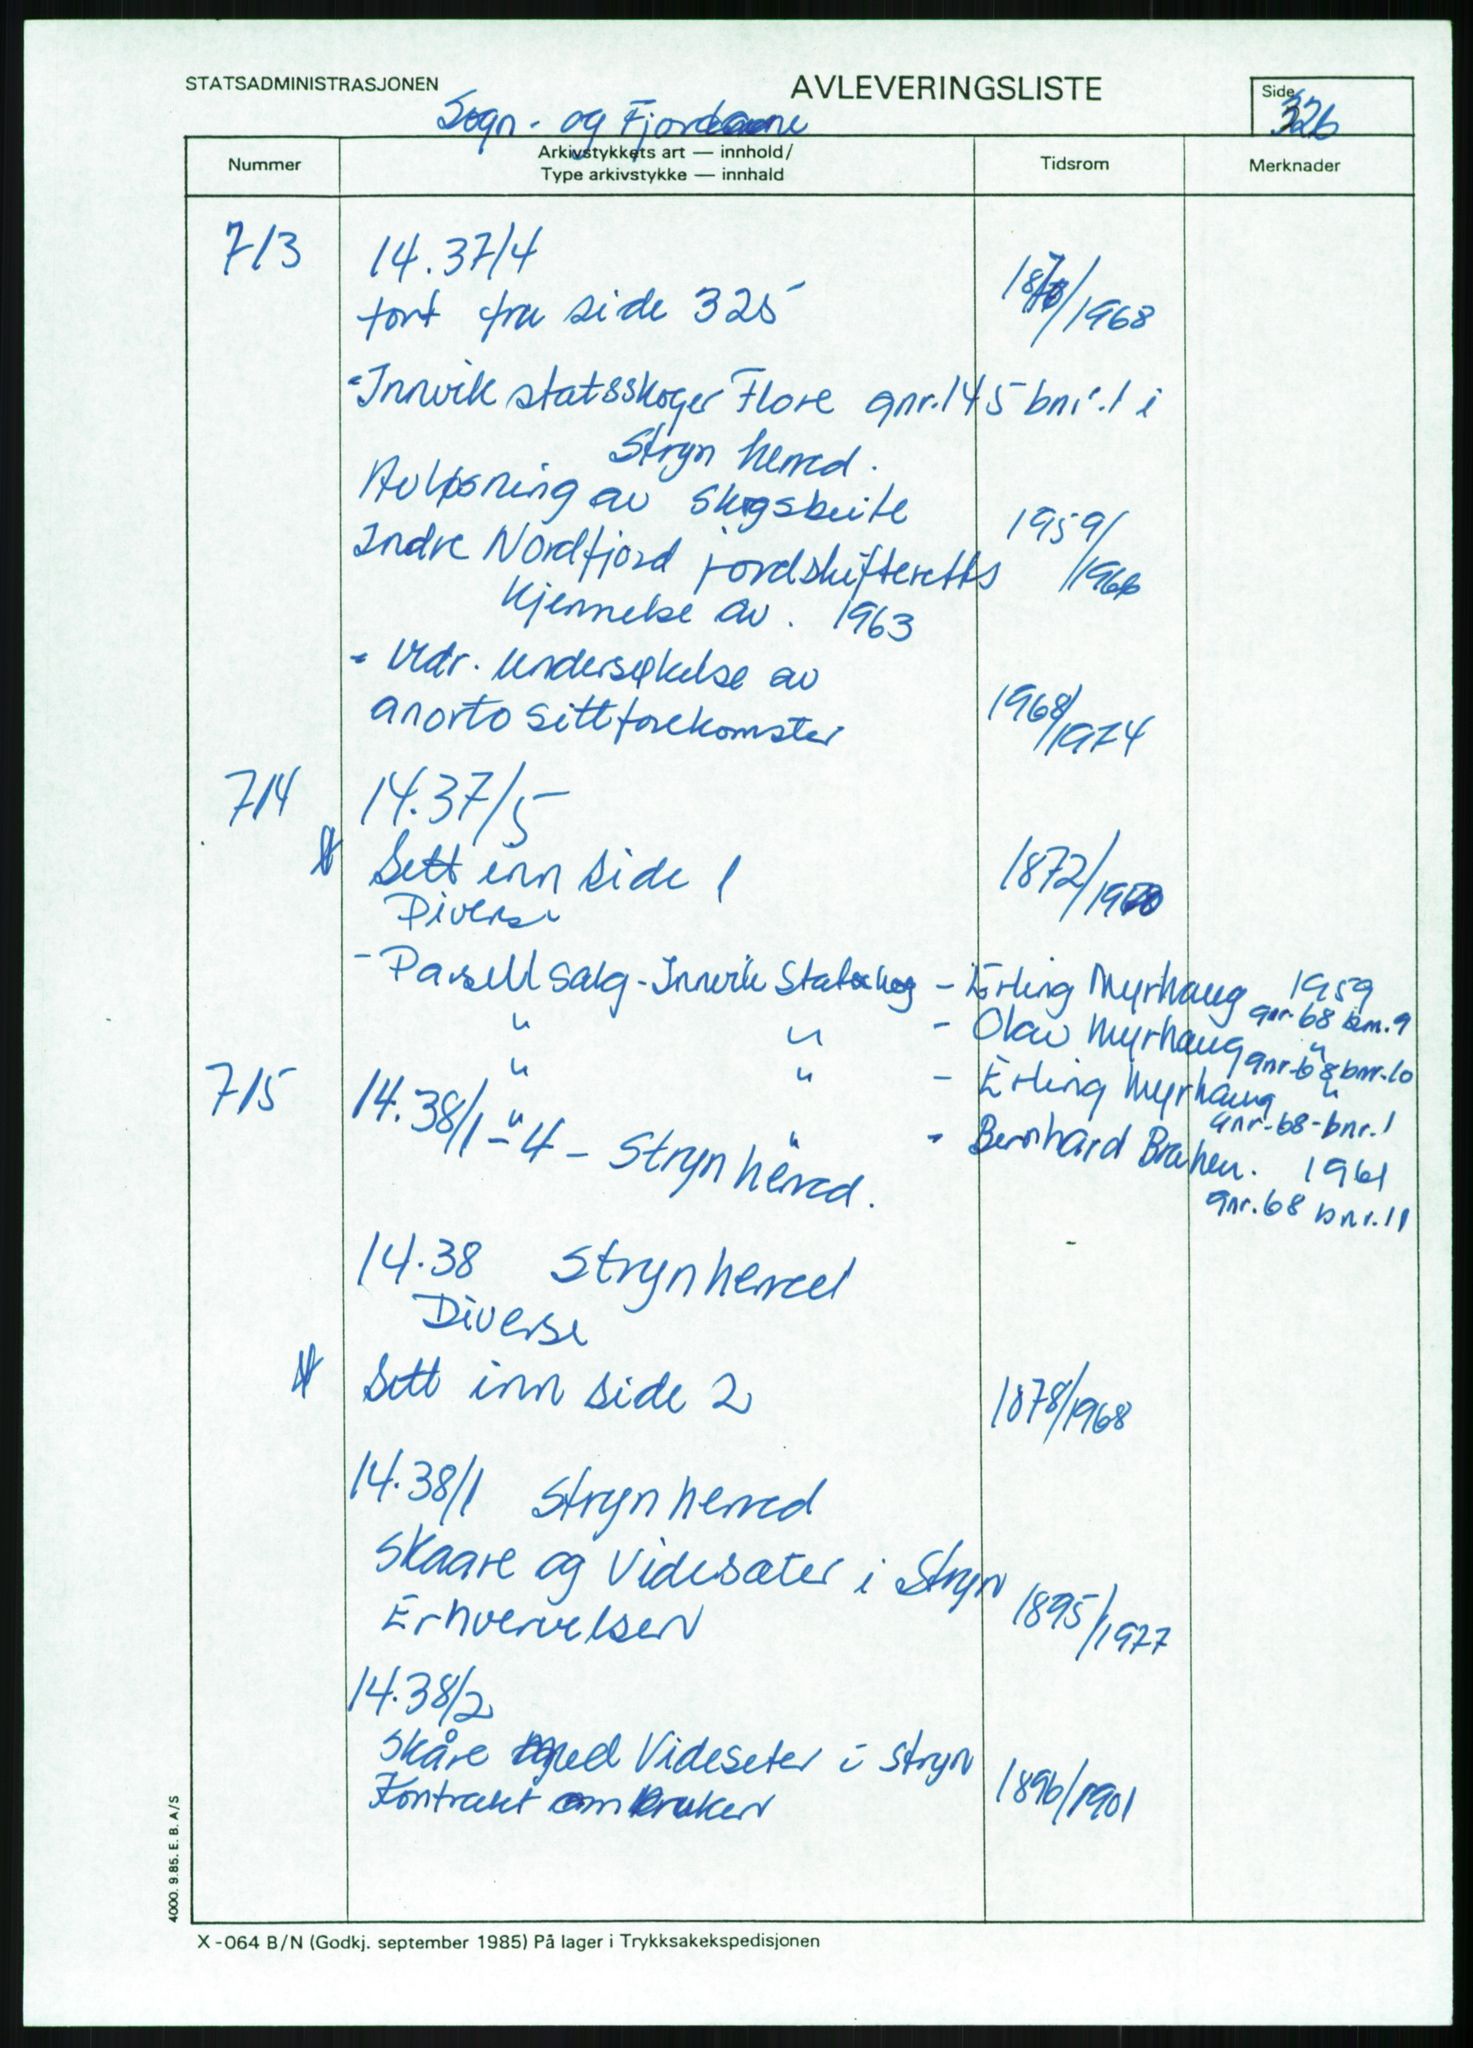 STATSADMINISTRASJONEN
AVLEVERINGSLISTE
Side
326
Sogn- og Fjordane
Nummer
Arkivstykkets art — innhold/
Type arkivstykke — innhald
Tidsrom
Merknader
713 14.37/4
fort fra side 325 /1968
- Innvik statsskoger Flore gnr.145 bnr.1 i
Stryn herred.
Avløsning av skogsbeite 1959/
Indre Nordfjord jordskifteretts /1966
Kjennelse av. 1963
- Vedr. undersøkelse av
anortosittforekomster 1968/1974
714 14.37/5
Sett inn side 1 1872/
Diverse
- Parsellsalg - Innvik Statskog - Erling Myrhaug 1959
gnr. 68 bnr. 9
" " - Olav Myrhaug "
gnr. 68 bnr. 10
" " - Erling Myrhaug "
gnr. 68 - bnr. 1
" " - Bernhard 1961
gnr. 68 bnr. 11
715 14.38/1 - 4 - Stryn herred.
14.38 Stryn herred
Diverse
Sett inn side 2 1878/1968
14.38/1 Stryn herred
Skaare og Videsæter i Stryn
Erhvervelsen 1895/1977
14.38/2
Skåre med Videseter i Stryn
Kontrakt om bruken 1896/1901
4000. 9.85. E. B. A/S
X-064 B/N (Godkj. september 1985) På lager i Trykksakekspedisjonen